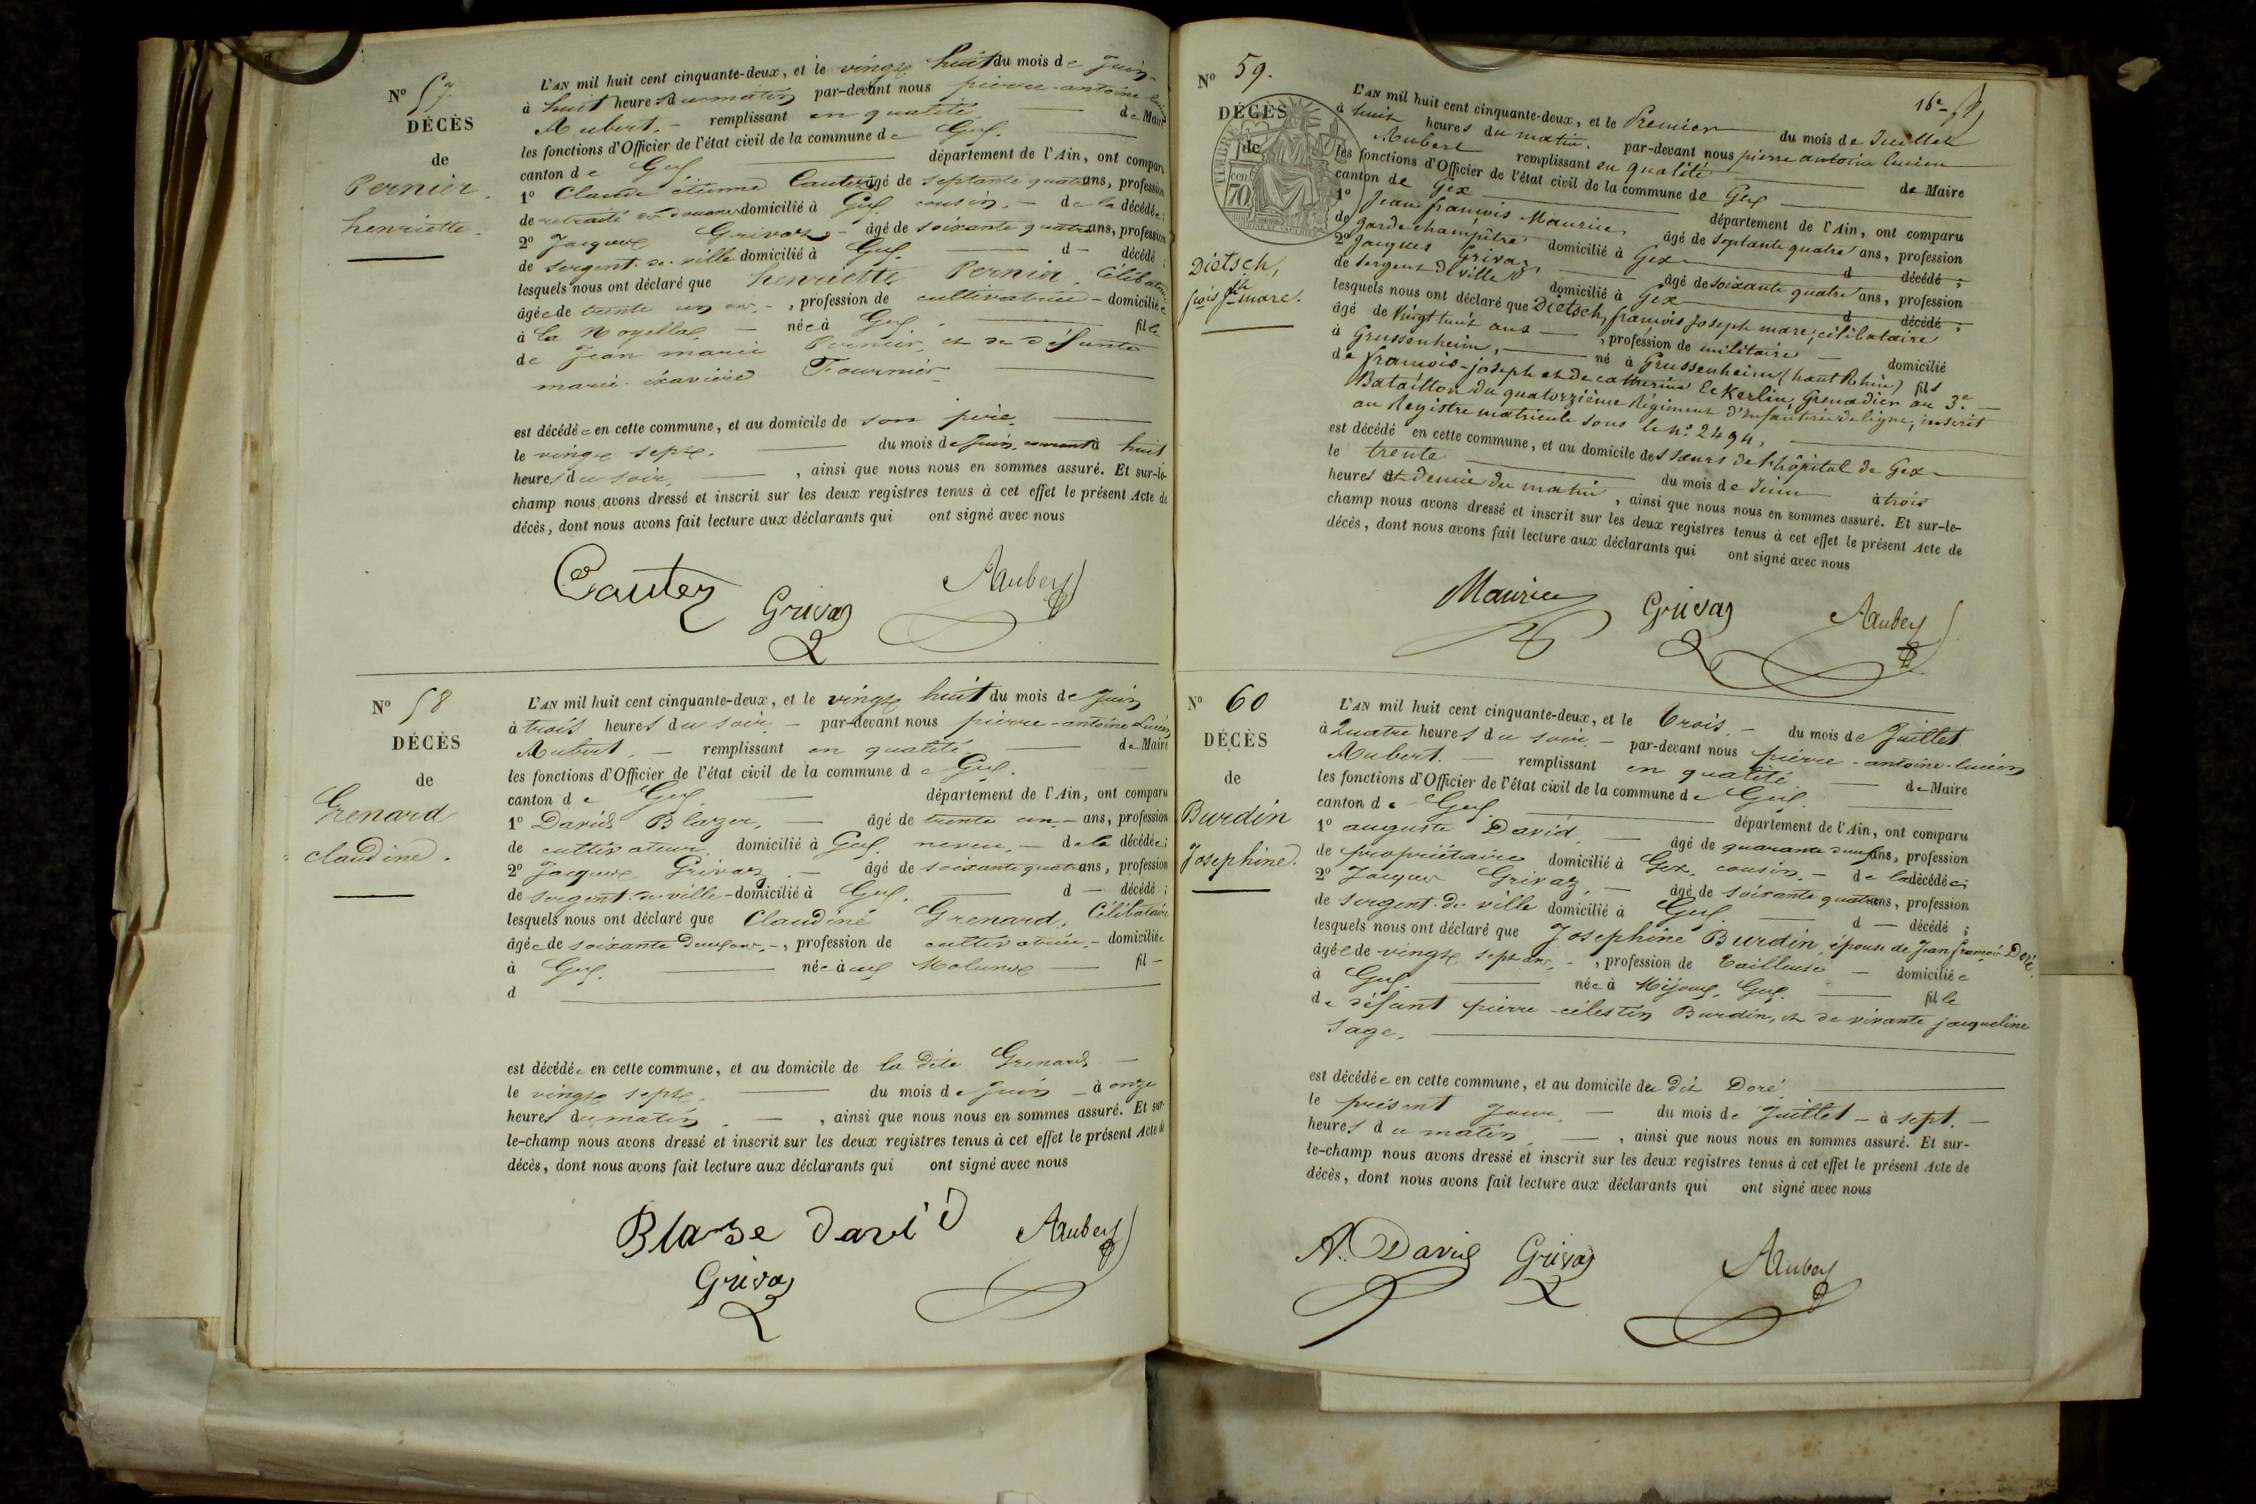 N° 57.
DÉCÈS
de
Pernier
henriette.
L'AN mil huit cent cinquante-deux, et le vingt huit du mois de Juin
à huit heures du matin par-devant nous pierre-antoine-lucien
Aubert. remplissant en qualité de Maire
les fonctions d'Officier de l'état civil de la commune de Gex.
canton de Gex département de l'Ain, ont comparu
1° Claude étienne Cautez âgé de septante quatre ans, profession
de retraité des douanes domicilié à Gex cousin. de la décédée;
2° Jacques Grivaz âgé de soixante quatre ans, profession
de sergent de ville domicilié à Gex. d décédé ;
lesquels nous ont déclaré que henriette Pernier. Célibataire
âgée de trente un ans, profession de cultivatrice domiciliée
à la née à Gex. fille
de Jean marie Pernier, et de défunte
marie xavière Fournier
est décédée en cette commune, et au domicile de son père
le vingt sept. du mois de Juin courant à huit
heures du soir, ainsi que nous nous en sommes assuré. Et sur-le-
champ nous avons dressé et inscrit sur les deux registres tenus à cet effet le présent Acte de
décès, dont nous avons fait lecture aux déclarants qui ont signé avec nous
Cautez Grivaz Aubert
N° 58
DÉCÈS
de
Grenard
claudine.
L'AN mil huit cent cinquante-deux, et le vingt huit du mois de Juin
à trois heures du soir par-devant nous pierre-antoine Lucien
Aubert. remplissant en qualité de Maire
les fonctions d'Officier de l'état civil de la commune de Gex.
canton de Gex. département de l'Ain, ont comparu
1° David Blazer, âgé de trente un ans, profession
de cultivateur domicilié à Gex. neveu, de la décédée;
2° Jacques Grivaz âgé de soixante quatre ans, profession
de sergent de ville domicilié à Gex. d décédé ;
lesquels nous ont déclaré que Claudine Grenard. Célibataire
âgée de soixante deux ans, profession de cultivatrice domiciliée
à Gex. née à fil
d
est décédée en cette commune, et au domicile de la dite Grenard
le vingt sept. du mois de Juin à onze
heures du matin, ainsi que nous nous en sommes assuré. Et sur-
le-champ nous avons dressé et inscrit sur les deux registres tenus à cet effet le présent Acte de
décès, dont nous avons fait lecture aux déclarants qui ont signé avec nous
Blaze David Aubert
Grivaz
16e
N° 59.
DÉCÈS
de
TIMBRE
cen
70
Dietsch,
fçois jph marc.
L'AN mil huit cent cinquante-deux, et le Premier du mois de Juillet
à huit heures du matin. par-devant nous pierre antoine lucien
Aubert remplissant en qualité de Maire
les fonctions d'Officier de l'état civil de la commune de Gex
canton de Gex département de l'Ain, ont comparu
1° Jean françois Maurice, âgé de septante quatre ans, profession
de garde champêtre domicilié à Gex d décédé ;
2° Jacques Grivaz, âgé de soixante quatre ans, profession
de sergent de ville domicilié à Gex d décédé ;
lesquels nous ont déclaré que Dietsch, françois joseph marc, célibataire
âgé de vingt huit ans, profession de militaire domicilié
à Grussenheim, né à Grussenheim (haut Rhin) fils
de françois-joseph et de catherine Eckerlin, Grenadier au 3e
Bataillon du quatorzième Régiment d'Infanterie de ligne, inscrit
au Registre matricule sous le n° 2494,
est décédé en cette commune, et au domicile des sœurs de l'hôpital de Gex
le trente du mois de Juin à trois
heures et demie du matin, ainsi que nous nous en sommes assuré. Et sur-le-
champ nous avons dressé et inscrit sur les deux registres tenus à cet effet le présent Acte de
décès, dont nous avons fait lecture aux déclarants qui ont signé avec nous
Maurice Grivaz Aubert
N° 60
DÉCÈS
de
Burdin
Josephine.
L'AN mil huit cent cinquante-deux, et le trois. du mois de Juillet
à Quatre heures du soir par-devant nous pierre-antoine-lucien
Aubert. remplissant en qualité de Maire
les fonctions d'Officier de l'état civil de la commune de Gex.
canton de Gex. département de l'Ain, ont comparu
1° auguste David âgé de quarante deux ans, profession
de propriétaire domicilié à Gex. cousin. de la décédée;
2° Jacques Grivaz. âgé de soixante quatre ans, profession
de sergent de ville domicilié à Gex. d décédé ;
lesquels nous ont déclaré que Josephine Burdin, épouse de Jean françois Doré
âgée de vingt sept ans, profession de tailleuse domiciliée
à Gex. née à Mijoux, Gex. fille
de défunt pierre-célestin Burdin, et de vivante jacqueline
Sage.
est décédée en cette commune, et au domicile du dit Doré
le présent jour du mois de Juillet à sept.
heures du matin, ainsi que nous nous en sommes assuré. Et sur-
le-champ nous avons dressé et inscrit sur les deux registres tenus à cet effet le présent Acte de
décès, dont nous avons fait lecture aux déclarants qui ont signé avec nous
A. David Grivaz Aubert